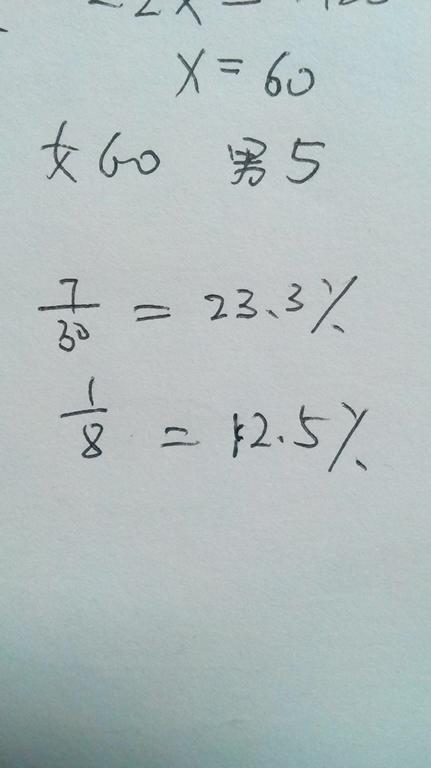 x = 60
女60 男5
7/30 = 23.3%
1/8 = 12.5%